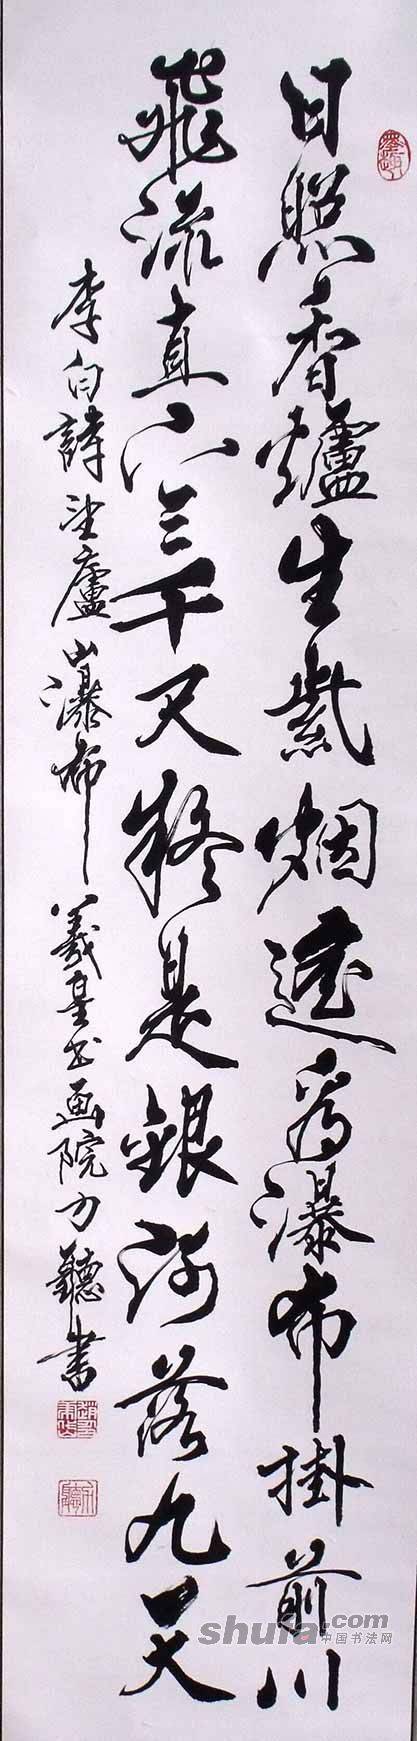 墨趣
日照香爐生紫烟遥看瀑布掛前川
飛流直下三千尺疑是銀河落九天
李白詩望廬山瀑布 羲皇书画院力聽書
shufa.com
中国书法网